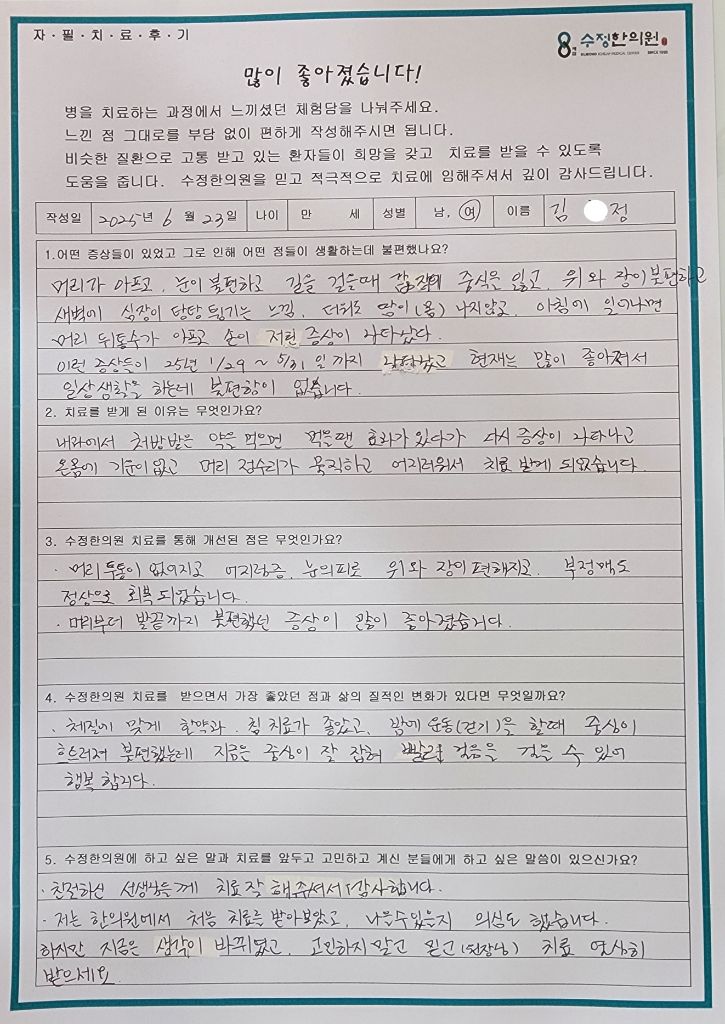 자·필·치·료·후·기
8체질 수정한의원
SINCE 1995
많이 좋아졌습니다!
병을 치료하는 과정에서 느끼셨던 체험담을 나눠주세요.
느낀 점 그대로를 부담 없이 편하게 작성해주시면 됩니다.
비슷한 질환으로 고통 받고 있는 환자들이 희망을 갖고 치료를 받을 수 있도록
도움을 줍니다. 수정한의원을 믿고 적극적으로 치료에 임해주셔서 깊이 감사드립니다.
작성일 2025년 6월 23일 나이 만 세 성별 남, 여 이름 김 정
1.어떤 증상들이 있었고 그로 인해 어떤 점들이 생활하는데 불편했나요?
머리가 아프고, 눈이 불편하고 길을 걸을때 중심을 잃고, 위와 장이 불편하고
새벽에 심장이 탕탕 튕기는 느낌, 더워도 땀이(몸) 나지않고, 아침에 일어나면
머리 뒤통수가 아프고 손이 저린 증상이 나타났다.
이런 증상들이 25년 1/29 ~ 5/31일 까지 나타났고 현재는 많이 좋아져서
일상생활을 하는데 불편함이 없습니다.
2. 치료를 받게 된 이유는 무엇인가요?
내과에서 처방받은 약을 먹으면 먹을땐 효과가 있다가 다시 증상이 나타나고
온몸에 기운이 없고 머리 정수리가 묵직하고 어지러워서 치료 받게 되었습니다.
3. 수정한의원 치료를 통해 개선된 점은 무엇인가요?
· 머리 두통이 없어지고 어지럼증, 눈의피로 위와 장이 편해지고. 부정맥도
정상으로 회복 되었습니다.
· 머리부터 발끝까지 불편했던 증상이 많이 좋아졌습니다.
4. 수정한의원 치료를 받으면서 가장 좋았던 점과 삶의 질적인 변화가 있다면 무엇일까요?
· 체질에 맞게 한약과 침 치료가 좋았고, 밤에 운동(걷기)을 할때 중심이
흐트러져 불편했는데 지금은 중심이 잘 잡혀 빠른 걸음을 걸을 수 있어
행복합니다.
5. 수정한의원에 하고 싶은 말과 치료를 앞두고 고민하고 계신 분들에게 하고 싶은 말씀이 있으신가요?
· 친절하신 선생님들께 치료 잘 해주셔서 감사합니다.
· 저는 한의원에서 처음 치료를 받아보았고, 나을수있을지 의심도 했습니다.
하지만 지금은 생각이 바뀌었고, 고민하지말고 믿고(원장님) 치료 열심히
받으세요.